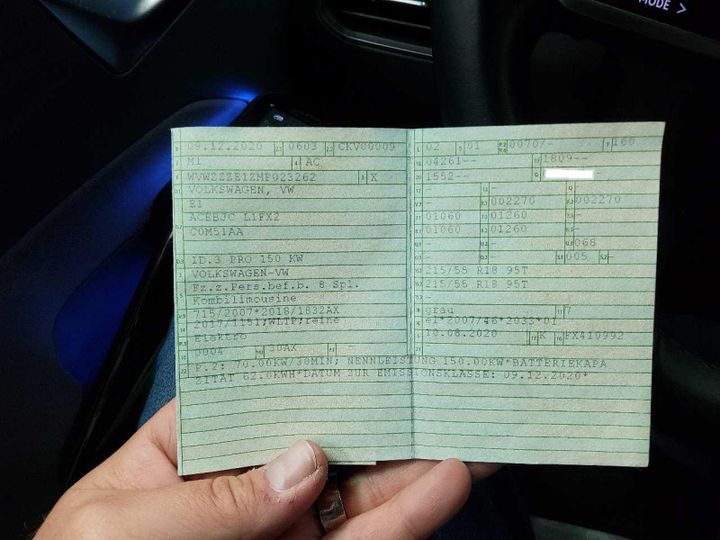 MODE >
B 09.12.2020 2.1 0603 2.2 CKV00009
J M1 4 AC
E WVWZZZE1ZMP023262 3 X
VOLKSWAGEN, VW
E1
ACEBJC L1FX2
C0M51AA
ID.3 PRO 150 KW
VOLKSWAGEN-VW
Fz.z.Pers.bef.b. 8 Spl.
Kombilimousine
715/2007*2018/1832AX
2017/1151;WLTP;reine
Elektro
0004 30AX -
P.2: 70.00KW/30MIN; NENNLEISTUNG 150.00KW*BATTERIEKAPA
ZITÄT 62.0KWH*DATUM ZUR EMISSIONSKLASSE: 09.12.2020*
02 01 0070/- 160
04261-- 1809--
1552-- G
- -
- 002270 002270
01060 01260 -
01060 01260 -
- - 068
- 005 -
215/55 R18 95T
215/55 R18 95T
-
grau 7
e1*2007/46*2033*01
10.08.2020 K PX410992